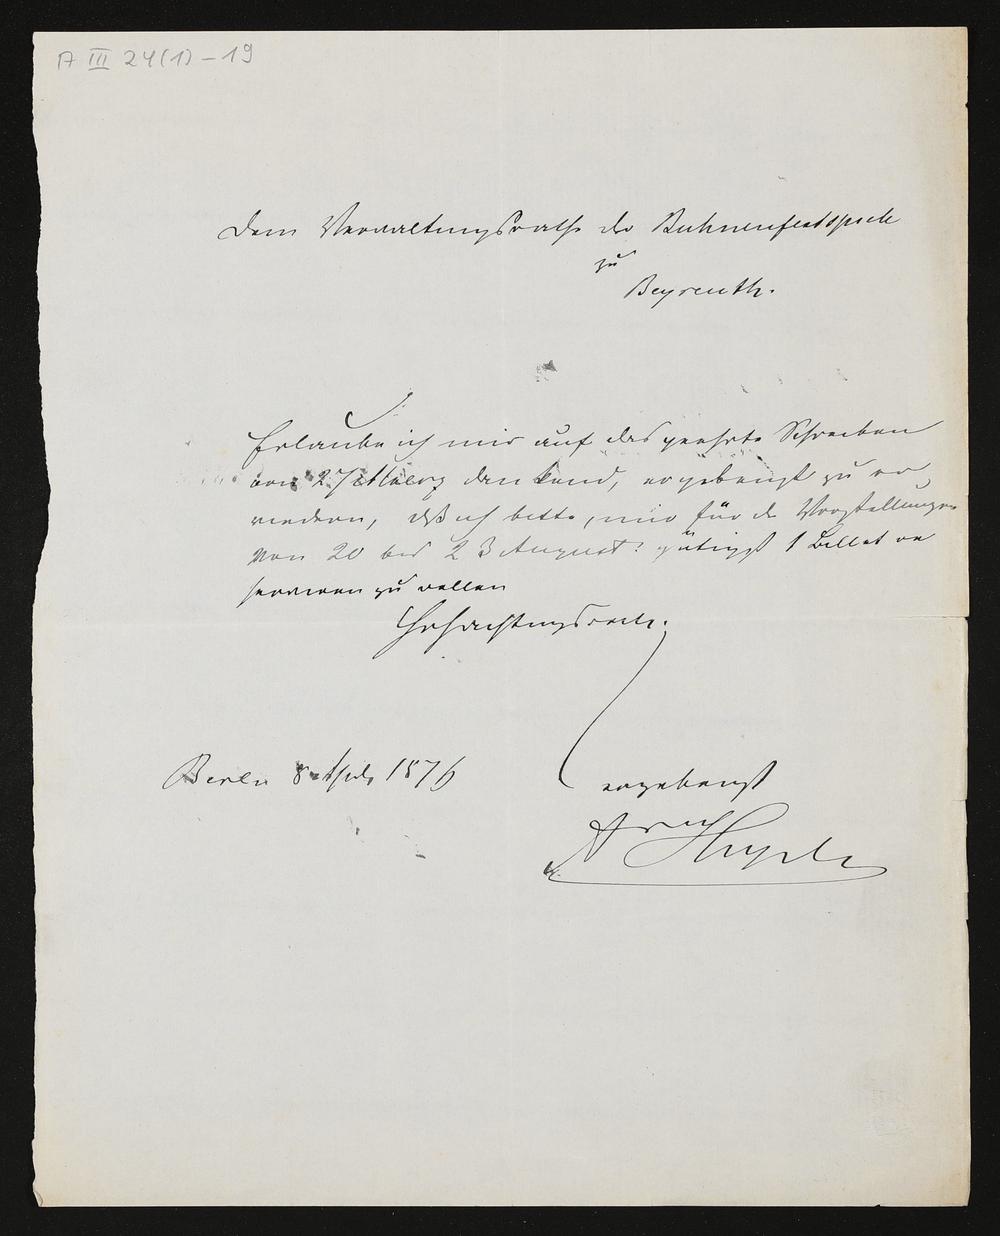 A III 24(1)-19
Dem Verwaltungsrathe der Buhnenfestspiele
zu
Beyreuth.
Erlaube ich mir auf das geehrte Schreiben
vom 27 Maerz dankend, ergebenst zu er
wiedern, daß ich bitte, mir für die Vorstellungen
vom 20 bis 23 August: gütigst 1 Billet re
serviren zu wollen
Hochachtungsvoll.
Berlin 8 1876
ergebenst